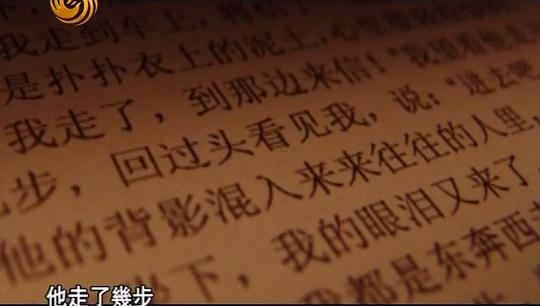 我走到车上，
是扑扑衣上的泥土，心里
我走了，到那边来信！”我望着他
步，回过头看见我，说：“进去吧
他的背影混入来来往往的人里，
下，我的眼泪又来了
我都是东奔西
他走了幾步